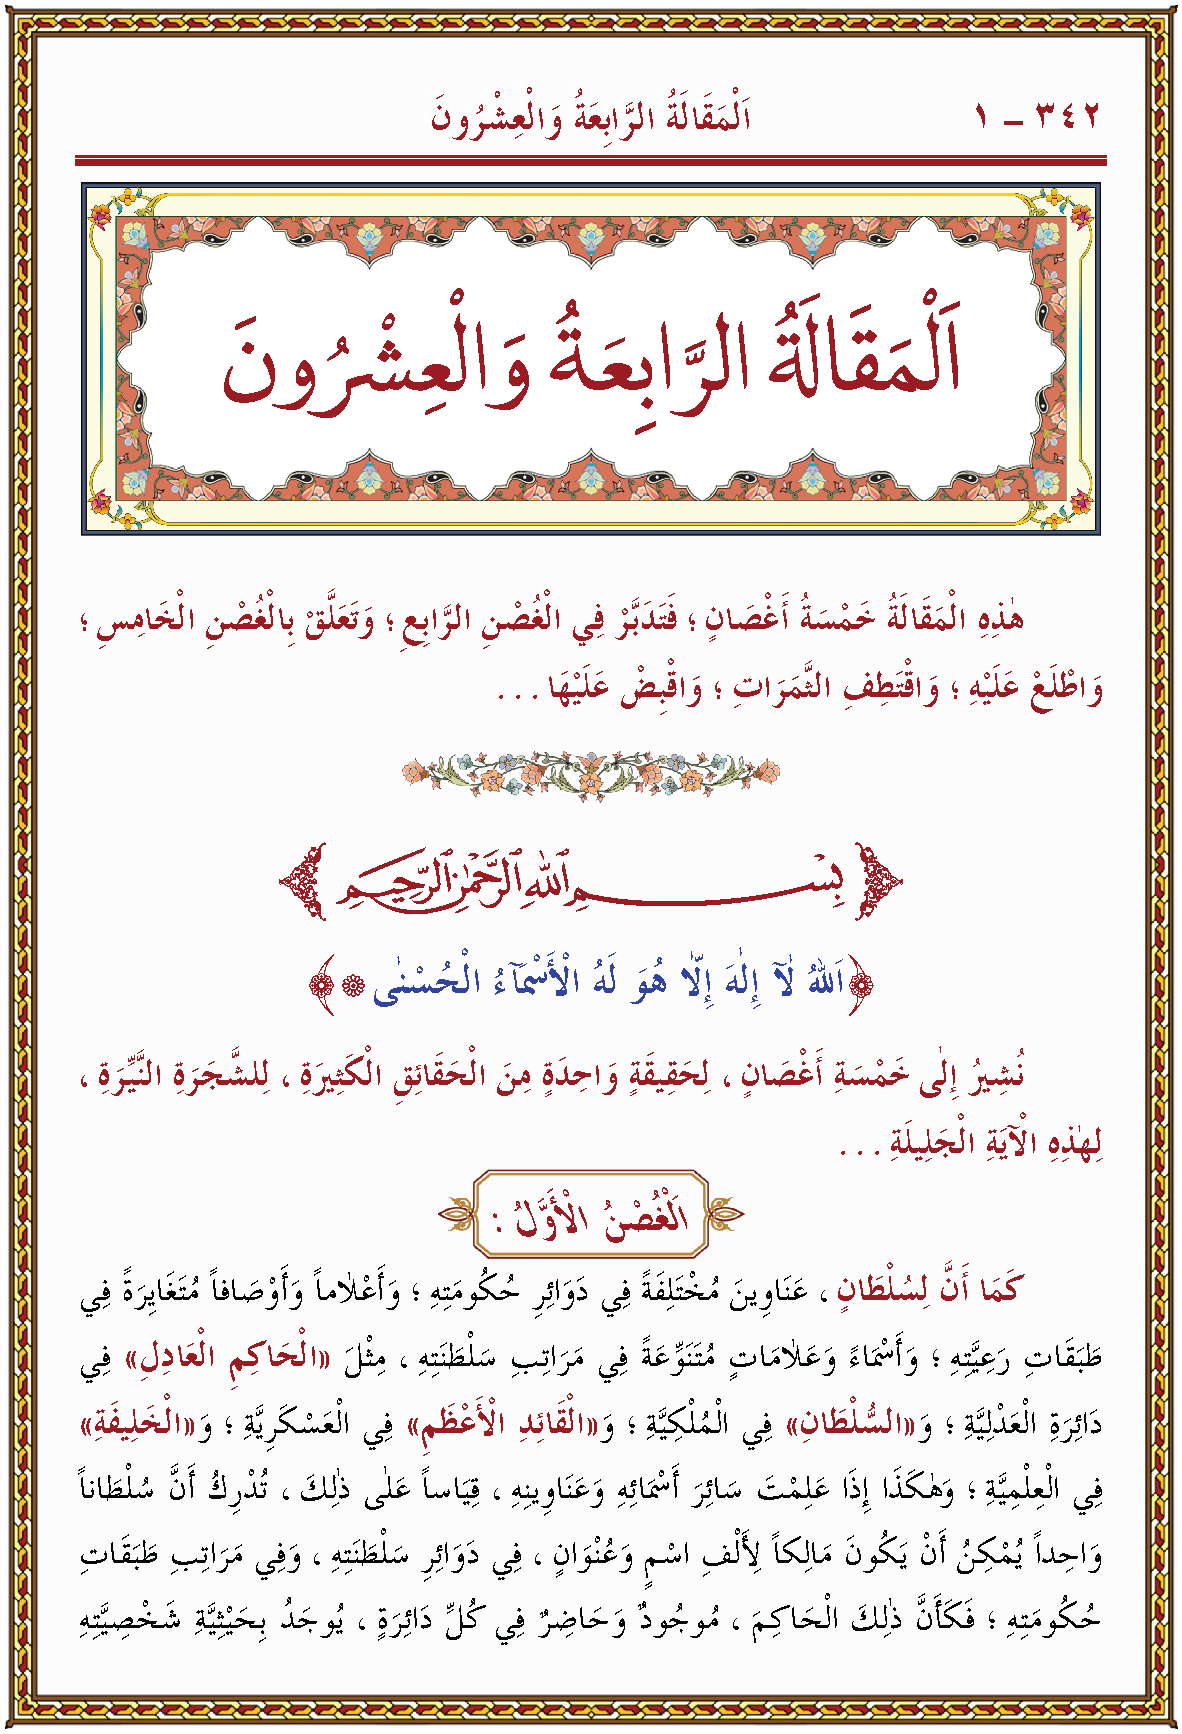 ٣٤٢ – ١
اَلْمَقَالَةُ الرَّابِعَةُ وَالْعِشْرُونَ
اَلْمَقَالَةُ الرَّابِعَةُ وَالْعِشْرُونَ
هٰذِهِ الْمَقَالَةُ خَمْسَةُ أَغْصَانٍ ؛ فَتَدَبَّرْ فِي الْغُصْنِ الرَّابِعِ ؛ وَتَعَلَّقْ بِالْغُصْنِ الْخَامِسِ ؛
وَاطْلَعْ عَلَيْهِ ؛ وَاقْتَطِفِ الثَّمَرَاتِ ؛ وَاقْبِضْ عَلَيْهَا . . .
بِسْمِ اللهِ الرَّحْمٰنِ الرَّحِيمِ
﴿اَللهُ لَآ إِلٰهَ إِلَّا هُوَ لَهُ الْأَسْمَآءُ الْحُسْنٰى ۞﴾
نُشِيرُ إِلٰى خَمْسَةِ أَغْصَانٍ ، لِحَقِيقَةٍ وَاحِدَةٍ مِنَ الْحَقَائِقِ الْكَثِيرَةِ ، لِلشَّجَرَةِ النَّيِّرَةِ ،
لِهٰذِهِ الْآيَةِ الْجَلِيلَةِ . . .
اَلْغُصْنُ الْأَوَّلُ :
كَمَا أَنَّ لِسُلْطَانٍ ، عَنَاوِينَ مُخْتَلِفَةً فِي دَوَائِرِ حُكُومَتِهِ ؛ وَأَعْلَاماً وَأَوْصَافاً مُتَغَايِرَةً فِي
طَبَقَاتِ رَعِيَّتِهِ ؛ وَأَسْمَاءً وَعَلَامَاتٍ مُتَنَوِّعَةً فِي مَرَاتِبِ سَلْطَنَتِهِ ، مِثْلَ «الْحَاكِمِ الْعَادِلِ» فِي
دَائِرَةِ الْعَدْلِيَّةِ ؛ وَ«السُّلْطَانِ» فِي الْمُلْكِيَّةِ ؛ وَ«الْقَائِدِ الْأَعْظَمِ» فِي الْعَسْكَرِيَّةِ ؛ وَ«الْخَلِيفَةِ»
فِي الْعِلْمِيَّةِ ؛ وَهٰكَذَا إِذَا عَلِمْتَ سَائِرَ أَسْمَائِهِ وَعَنَاوِينِهِ ، قِيَاساً عَلٰى ذٰلِكَ ، تُدْرِكُ أَنَّ سُلْطَاناً
وَاحِداً يُمْكِنُ أَنْ يَكُونَ مَالِكاً لِأَلْفِ اسْمٍ وَعُنْوَانٍ ، فِي دَوَائِرِ سَلْطَنَتِهِ ، وَفِي مَرَاتِبِ طَبَقَاتِ
حُكُومَتِهِ ؛ فَكَأَنَّ ذٰلِكَ الْحَاكِمَ ، مَوْجُودٌ وَحَاضِرٌ فِي كُلِّ دَائِرَةٍ ، يُوجَدُ بِحَيْثِيَّةِ شَخْصِيَّتِهِ